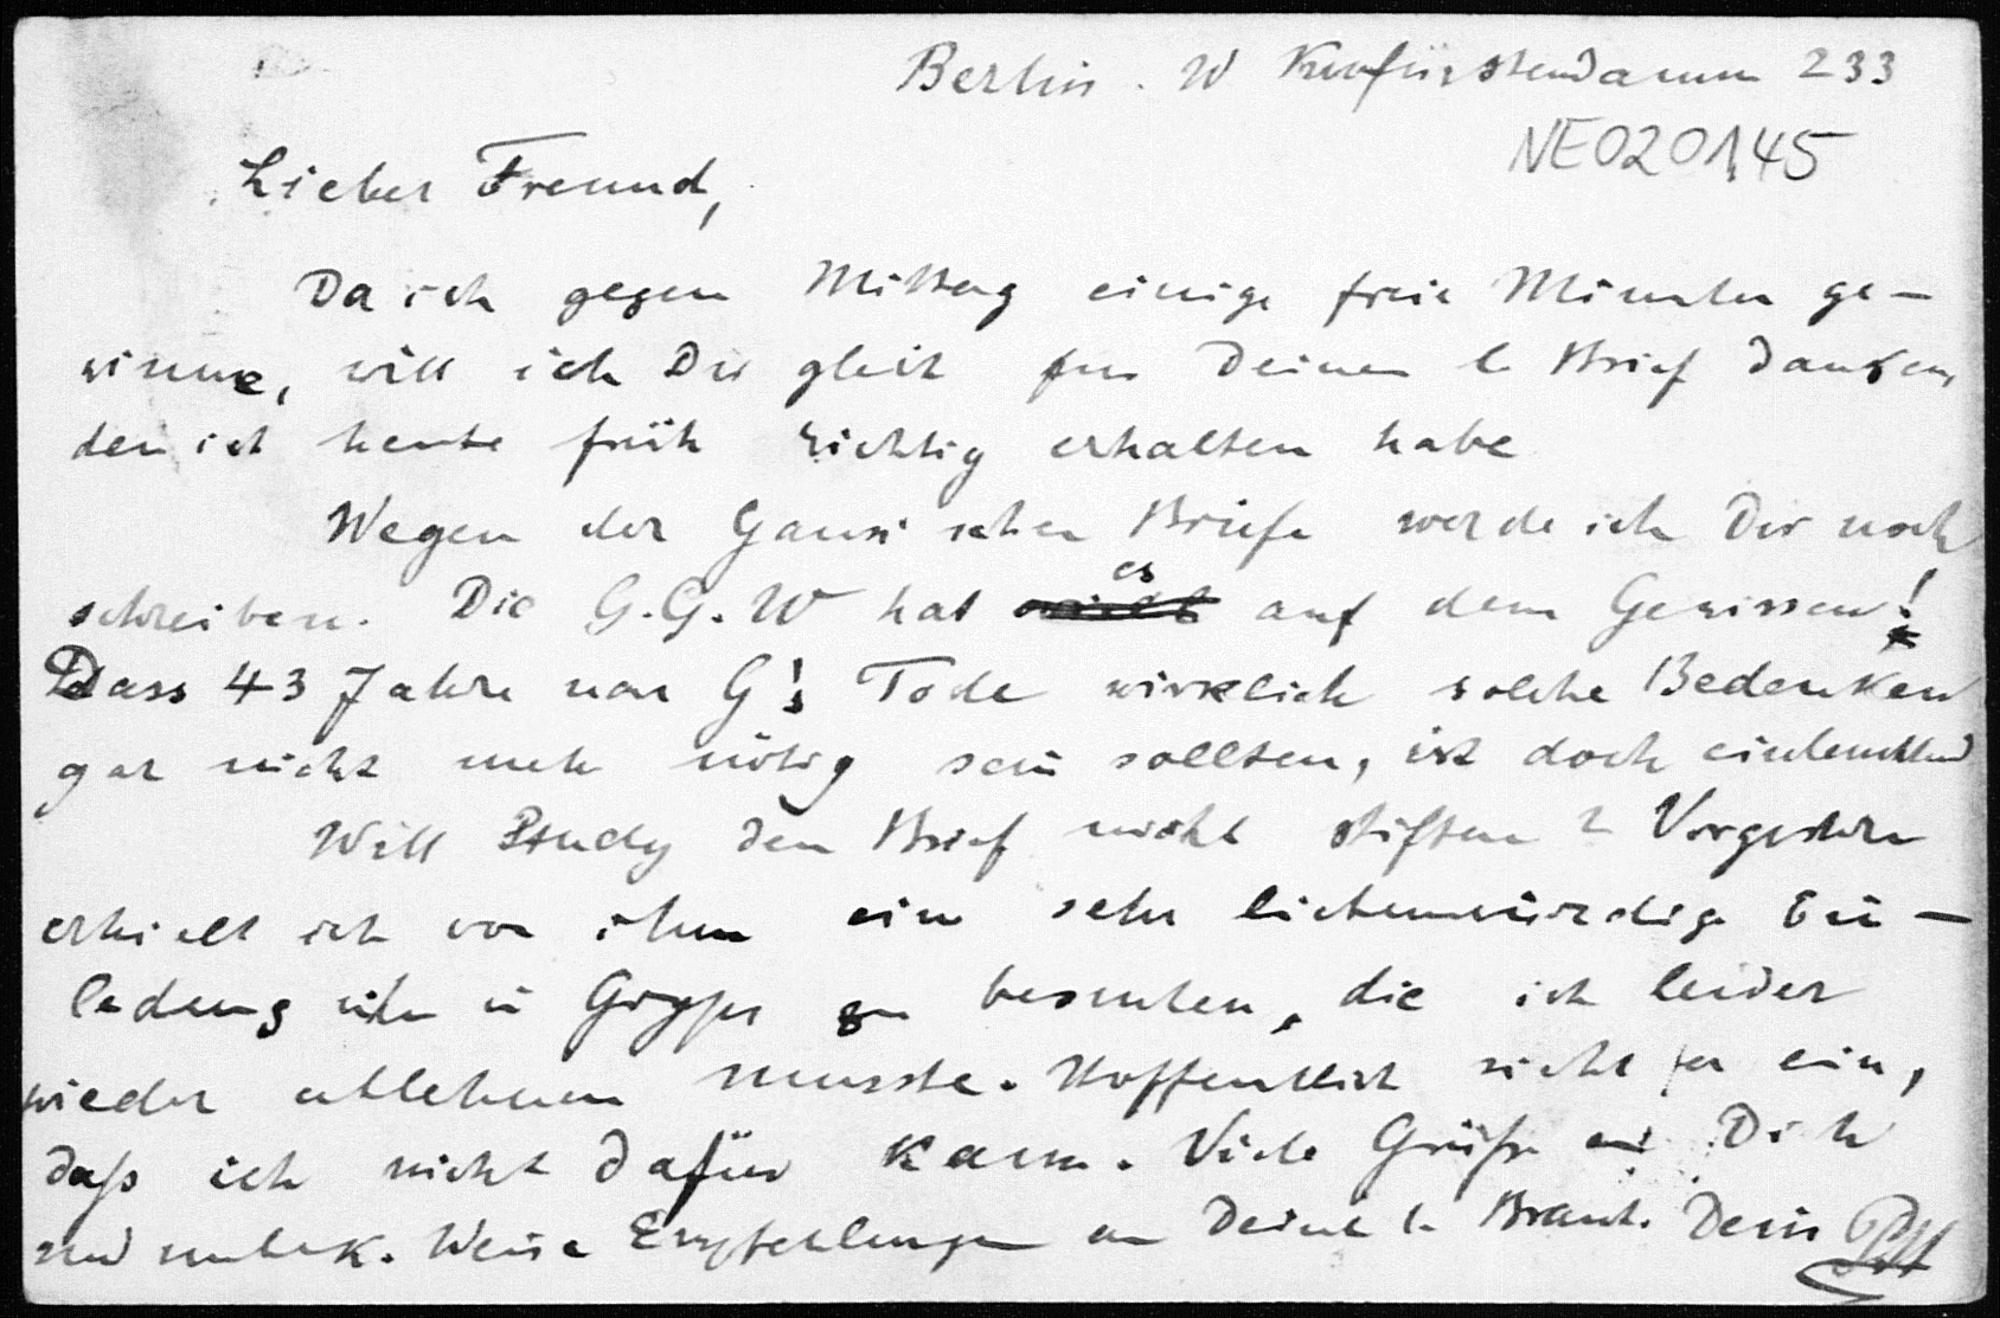 Berlin. W Kurfürstendamm 233
NE020145
Lieber Freund,
Da ich gegen Mittag einige freie Minuten ge-
winne, will ich Dir gleich für Deinen l. Brief danken,
den ich heute früh richtig erhalten habe
Wegen der Gaussischen Briefe werde ich Dir noch
schreiben. Die G.G.W hat es auf dem Gewissen!
Dass 43 Jahre nach G's Tode wirklich solche Bedenken
gar nicht mehr nötig sein sollten, ist doch einleuchtend
Will Study den Brief nicht stiften? Vorgestern
erhielt ich von ihm eine sehr liebenswürdige Ein-
ladung ihn in Gryps zu besuchen, die ich leider
wieder ablehnen musste. Hoffentlich sieht er ein,
daß ich nicht dafür kann. Viele Grüße an Dich
und unbek. Weise Empfehlungen an Deine l. Braut. Dein